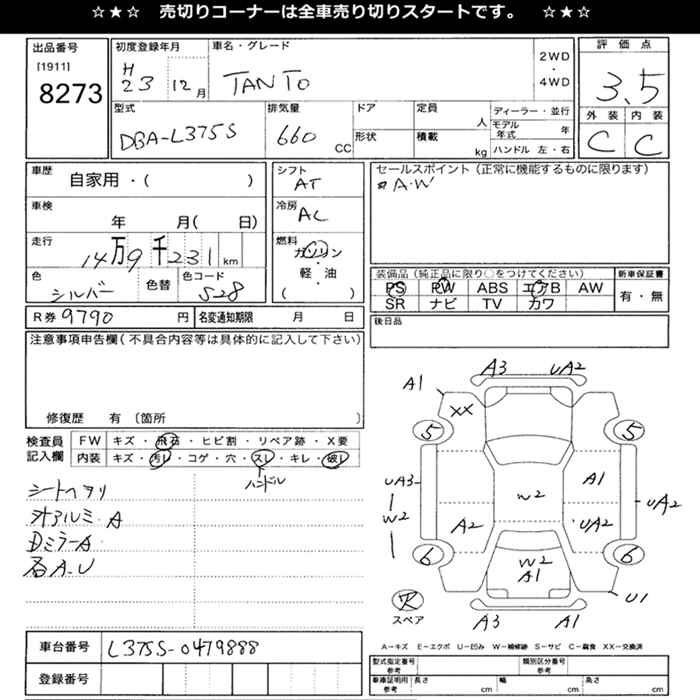 ☆★☆ 売切りコーナーは全車売り切りスタートです。 ☆★☆
出品番号
[1911]
8273
初度登録年月
H23 12月
車名・グレード
TANTO
2WD
・
4WD
評価点
3.5
外装 内装
C C
型式
DBA-L375S
排気量
660 CC
ドア
形状
定員 人
積載 kg
ディーラー・並行
モデル年式 年
ハンドル 左・右
車歴
自家用・( )
車検
年 月( 日)
走行
14万9千231km
色
シルバー
色替
色コード
S28
シフト
AT
冷房
AC
燃料
ガソリン
・
軽・油
( )
セールスポイント (正常に機能するものに限ります)
A・W
装備品 (純正品に限り○をつけてください)
PS PW ABS エアB AW
SR ナビ TV カワ
新車保証書
有・無
後日品
R券 9790 円
名変通知期限 月 日
注意事項申告欄(不具合内容等は具体的に記入して下さい)
修復歴 有 〔箇所 〕
検査員
記入欄
FW キズ・飛石・ヒビ割・リペア跡・X要
内装 キズ・汚レ・コゲ・穴・スレ・キレ・破レ
ハンドル
シートヘタリ
オアルミ・A
DミラーA
石A.U
A3 UA2
A1
XX
5 5
UA3 A1
W2 W2 UA2
A2 UA2
6 6
W2
A1
ス
スペア
A3 A1 U1
A-キズ E-エクボ U-凹み W-補修跡 S-サビ C-腐食 XX-交換済
車台番号 L375S-0479888
登録番号
型式指定番号
参考
類別区分番号
車庫証明用
参考
長さ cm
幅 cm
高さ cm